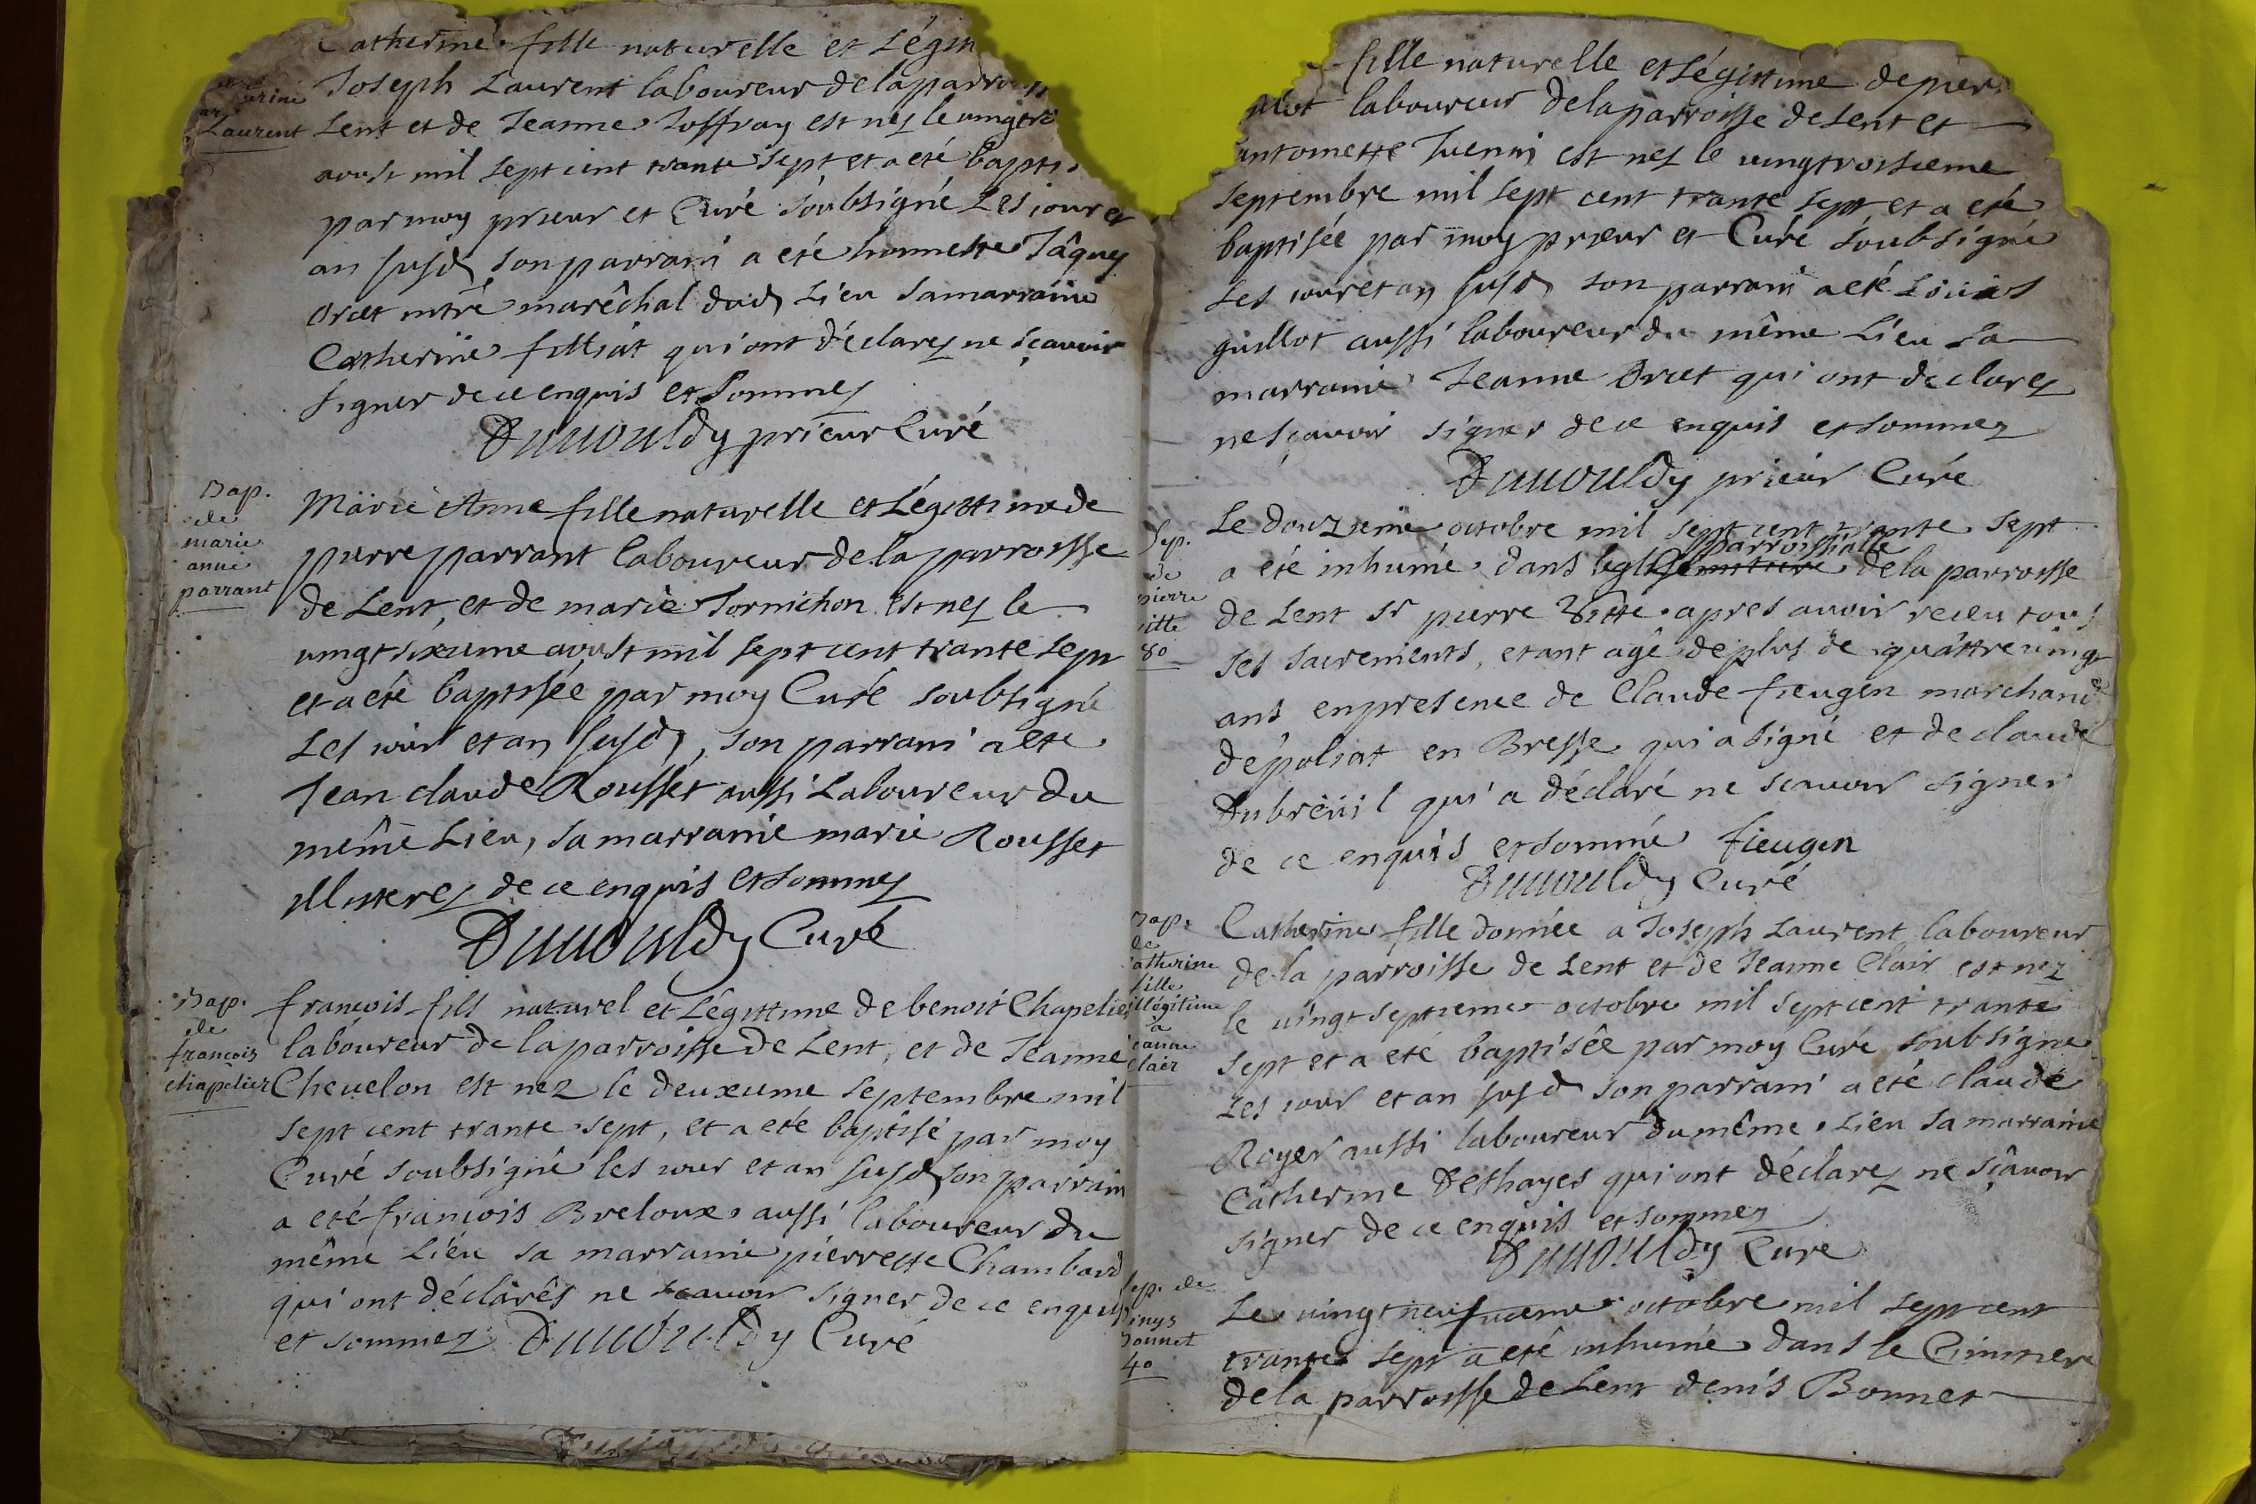 Catherine fille naturelle et Légit
Joseph Laurent laboureur de la parroiss
Lent et de Jeanne Joffray est nez le vingt
aoust mil sept cent trante sept et a eté bapti
par moy prieur et Curé soubsigné Les jour et
an susd son parrain a eté honneste Jâques
mtre marêchal dud Lieu sa marraine
Catherine filliat qui ont déclarez ne sçavoir
signer de ce enquis et sommez
prieur Curé
Laurent
Bap.
de
marie
anne
parrant
Marie Anne fille naturelle et Légittime de
pierre parrant laboureur de la parroisse
de Lent, et de marie Tornichon est nez le
vingt sixieme aoust mil sept cent trante sept
et a eté baptisée par moy Curé soubsigné
Les jour et an susd, son parrain a eté
Jean claude Rousset aussi Laboureur du
même Lieu, sa marraine marie Rousset
illisterez de ce enquis et sommez
Curé
Bap.
de
francois
chapelier
francois fils naturel et Légittime de benoit Chapelier
laboureur de la parroisse de Lent, et de Jeanne
Chevelon est nez le deuxieme septembre mil
sept cent trante sept, et a eté baptisé par moy
Curé soubsigné les jour et an susd son parrain
a eté francois Breloux aussi laboureur du
même Lieu sa marraine pierrette Chambard
qui ont déclarés ne scavoir signer de ce enquis
et sommez Curé
fille naturelle et Légittime de pier
laboureur de la parroisse de Lent et
antoinette est nez le vingtroisieme
septembre mil sept cent trante sept et a eté
baptisée par moy prieur et Curé soubsigné
Les jour et an susd son parrain a eté Louis
guillot aussi laboureur du même Lieu sa
marraine Jeanne qui ont declarez
ne sçavoir signer de ce enquis et sommez
prieur Curé
Sep.
de
pierre
vitte
80
Le douzieme octobre mil sept cent trante sept
parroissialle
a été inhumé dans leglise de la parroisse
de Lent Sr pierre Vitte apres avoir receu tous
ses sacrements, etant agé de plus de quattre vingt
ans en presence de Claude fieugen marchand
dépoliat en Bresse qui a signé et de claude
Dubreüil qui a déclaré ne scavoir signer
de ce enquis et sommé fieugen
Curé
Bap.
de
Catherine
fille
illégitime
à
Jeanne
Clair
Catherine fille donnée a Joseph Laurent laboureur
de la parroisse de Lent et de Jeanne Clair est nez
le vingt septieme octobre mil sept cent trante
sept et a eté baptisée par moy Curé soubsigné
Les jour et an susd son parrain a eté claude
Royer aussi laboureur du même Lieu sa marraine
Catherine Deshayes qui ont déclarez ne sçavoir
signer de ce enquis et sommez
Curé
Sep. de
Denys
Bonnet
40
Le vingt neufvieme octobre mil sept cent
trante sept a eté inhumé dans le Cimitiere
de la parroisse de Lent denis Bonnet